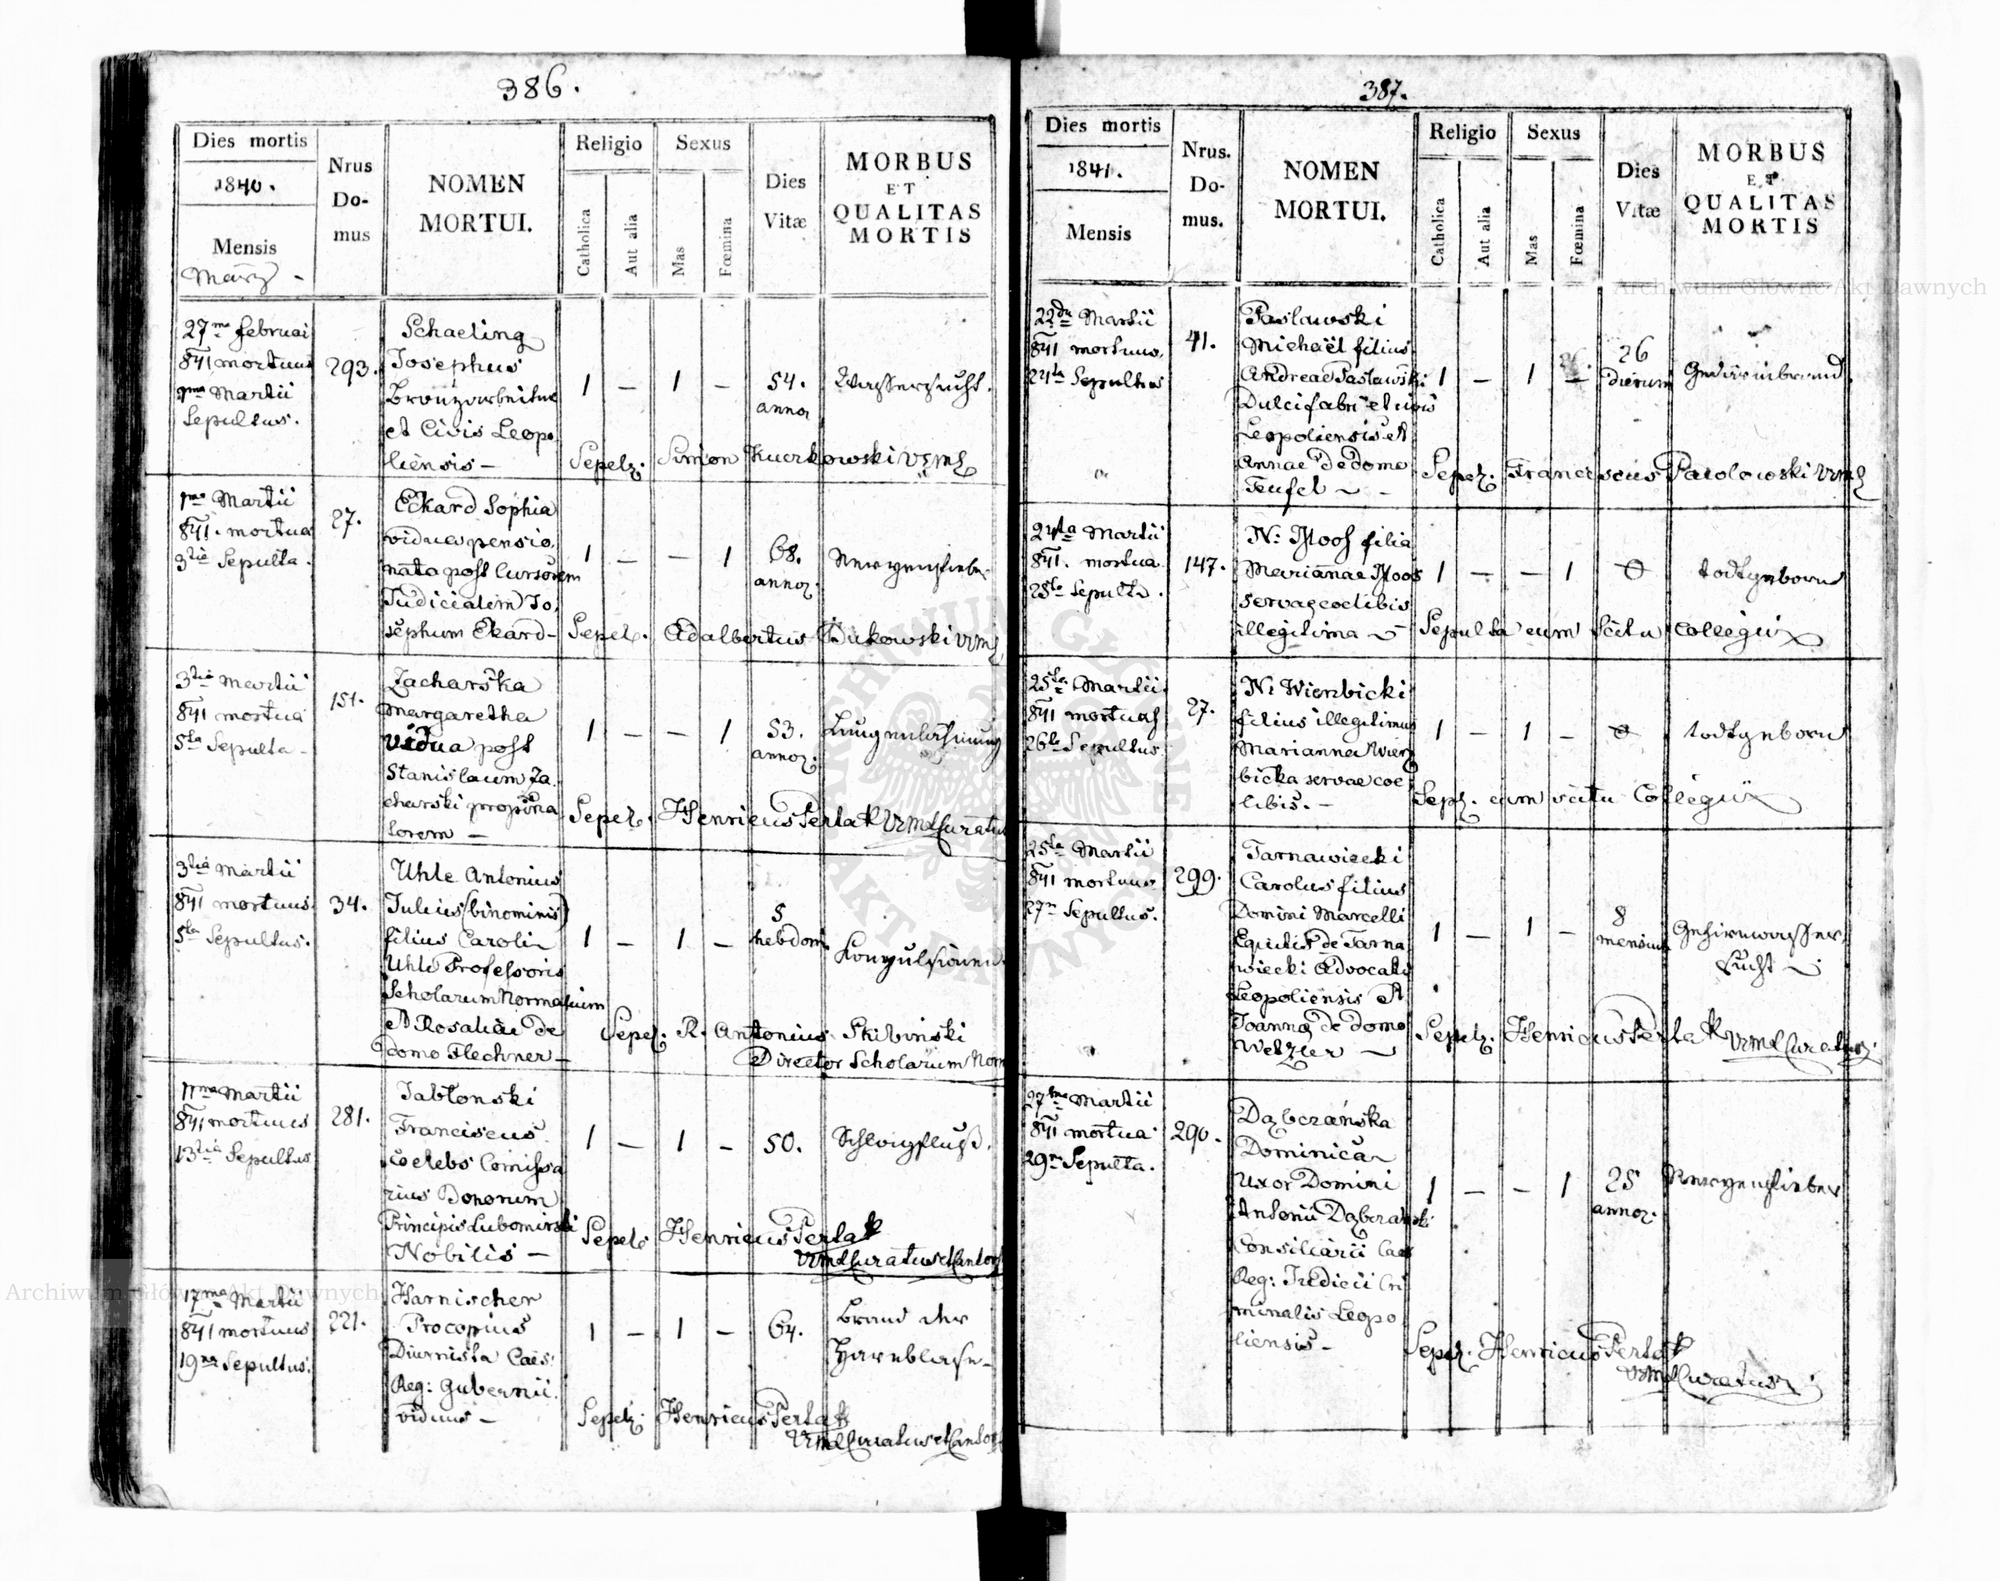 386.
Dies mortis
1840.
Mensis
März
Nrus
Do-
mus
NOMEN
MORTUI.
Religio
Catholica
Aut alia
Sexus
Mas
Fœmina
Dies
Vitæ
MORBUS
ET
QUALITAS
MORTIS
27ma Februai
841 mortuus
1ma Martii
Sepultus.
293.
Schaeling
Josephus
Bronzarbeiter
et Civis Leopo
liensis —
1 — 1 —
54.
annor
Wassersucht.
Sepel: Simon Kuerkowski
1ma Martii
841. mortua
3tia Sepulta.
27.
Eckard Sophia
vidua pensio,
nata post Cursorem
Judicialem Jo,
sephum Ekard —
1 — — 1
68.
annor:
Nervenfieber
Sepel: Adalbertus Bukowski
3tia Martii
841 mortua
5ta Sepulta —
151.
Zacharska
Margaretha
Vidua post
Stanislaum Za
charski propina
torem —
1 — — 1
53.
annor:
Lungenlähmung
Sepel: Henricus Perlak Curatus
3tia Martii
841 mortuus.
5ta Sepultus.
34.
Uhle Antonius
Julius (binominis)
filius Caroli
Uhle Professoris
Scholarum Normalium
et Rosaliae de
domo Flechner —
1 — 1 —
5
hebdom
Konvulsionen
Sepel: R. Antonius Skibinski
Director Scholarum Norm
11ma Martii
841 mortuus
13tia Sepultus
281.
Jabłonski
Franciscus
Coelebs Comissa
rius Bonorum
Principis Lubomirski
Nobilis —
1 — 1 —
50.
Schlagfluß.
Sepel: Henricus Perlak
Curatus et Cantor
17ma Martii
841 mortuus
19na Sepultus.
221.
Harnischer
Procopius
Diurnista Caes:
Reg: Gubernii
viduus —
1 — 1 —
64.
Brand der
Harnblase —
Sepel: Henricus Perlak
Curatus et Cantor
387.
Dies mortis
1841.
Mensis
Nrus.
Do-
mus.
NOMEN
MORTUI.
Religio
Catholica
Aut alia
Sexus
Mas
Fœmina
Dies
Vitæ
MORBUS
ET
QUALITAS
MORTIS
22da Martii
841 mortuus.
24ta Sepultus
41.
Pasławski
Michaël filius
Andreae Pasławski
Dulcifabri et civis
Leopoliensis et
Annae de domo
Teufel —
1 — 1 —
26
dierum
Gedärmbrand.
Sepel: Franciscus Pawlowski
24ta Martii
841. mortua
25ta Sepulta.
147.
N: Moos filia
Mariannae Moos
servae coelibis
illegitima —
1 — — 1
0
todtgeboren
Sepulta cum scitu Collegii
25ta Martii
841 mortuus
26ta Sepultus
27.
N: Wierzbicki
filius illegitimus
Marianna Wierz
bicka servae coe
libis. —
1 — 1 —
0
todtgeboren
Sepel. cum scitu Collegii
25ta Martii
841 mortuus
27a Sepultus.
299.
Tarnawiecki
Carolus filius
Domini Marcelli
Equitis de Tarna
wiecki Advocati
Leopoliensis et
Joanna de domo
Welzler —
1 — 1 —
8
mensium
Gehirnwasser
sucht —
Sepel: Henricus Perlak Curatus
27ma Martii
841 mortua
29na Sepulta.
290.
Dąbczańska
Dominica
Uxor Domini
Antonii Dąbczański
Consiliarii Caes
Reg: Judicii Cri
minalis Leopo
liensis —
1 — — 1
25
annor.
Nervenfieber
Sepel. Henricus Perlak
Curatus
Archiwum Główne Akt Dawnych
Archiwum Główne Akt Dawnych
ARCHIWUM GŁÓWNE AKT DAWNYCH